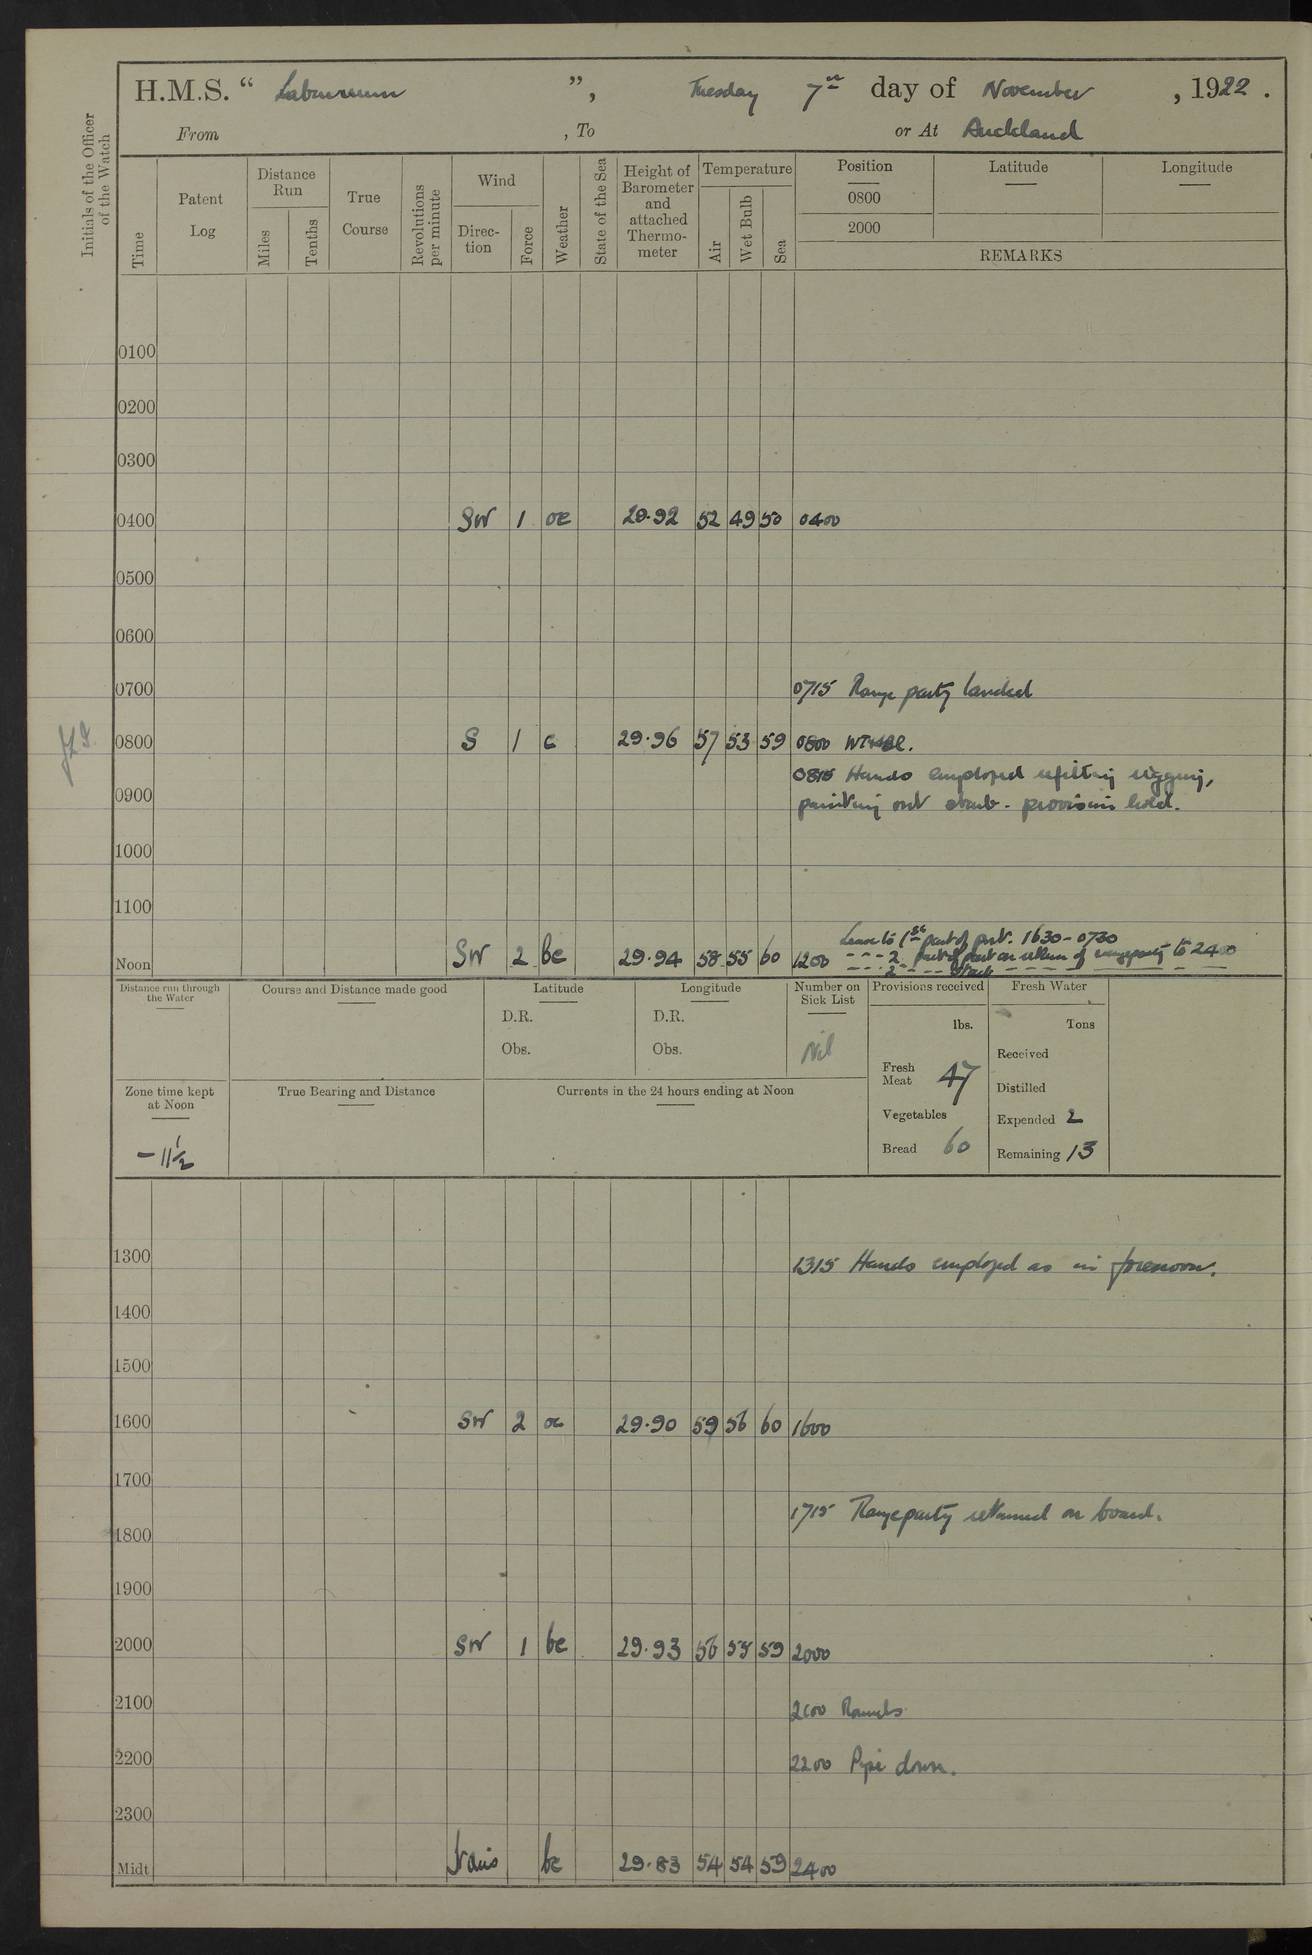 H.M.S. “ Laburnum ”, Tuesday 7th day of November , 1922 .
From , To or At Auckland
Initials of the Officer of the Watch
Time
Patent Log
Distance Run
Miles
Tenths
True Course
Revolutions per minute
Wind
Direc-tion
Force
Weather
State of the Sea
Height of Barometer and attached Thermo-meter
Temperature
Air
Wet Bulb
Sea
Position
0800
2000
Latitude
Longitude
REMARKS
0100
0200
0300
0400 SW 1 oc 29.92 52 49 50 0400
0500
0600
0700 0715 Range party landed
0800 S 1 c 29.96 57 53 59 0800
0815 Hands employed refitting rigging,
0900 painting out starb. provision hold.
1000
1100
Leave to 1st part of port. 1630 - 0730
Noon SW 2 bc 29.94 58 55 60 1200 - - - 2 part of port on return of range party to 2400
- - - 2 - - - Starb
Distance run through the Water
Course and Distance made good
Latitude
D.R.
Obs.
Longitude
D.R.
Obs.
Number on Sick List
Nil
Provisions received
lbs.
Fresh Meat 47
Vegetables
Bread 60
Fresh Water
Tons
Received
Distilled
Expended 2
Remaining 13
Zone time kept at Noon
- 11½
True Bearing and Distance
Currents in the 24 hours ending at Noon
1300 1315 Hands employed as in forenoon.
1400
1500
1600 SW 2 oc 29.90 59 56 60 1600
1700
1715 Range party returned on board.
1800
1900
2000 SW 1 bc 29.93 56 55 59 2000
2100 2100 Rounds
2200 2200 Pipe down.
2300
Midt bc 29.83 54 54 59 2400